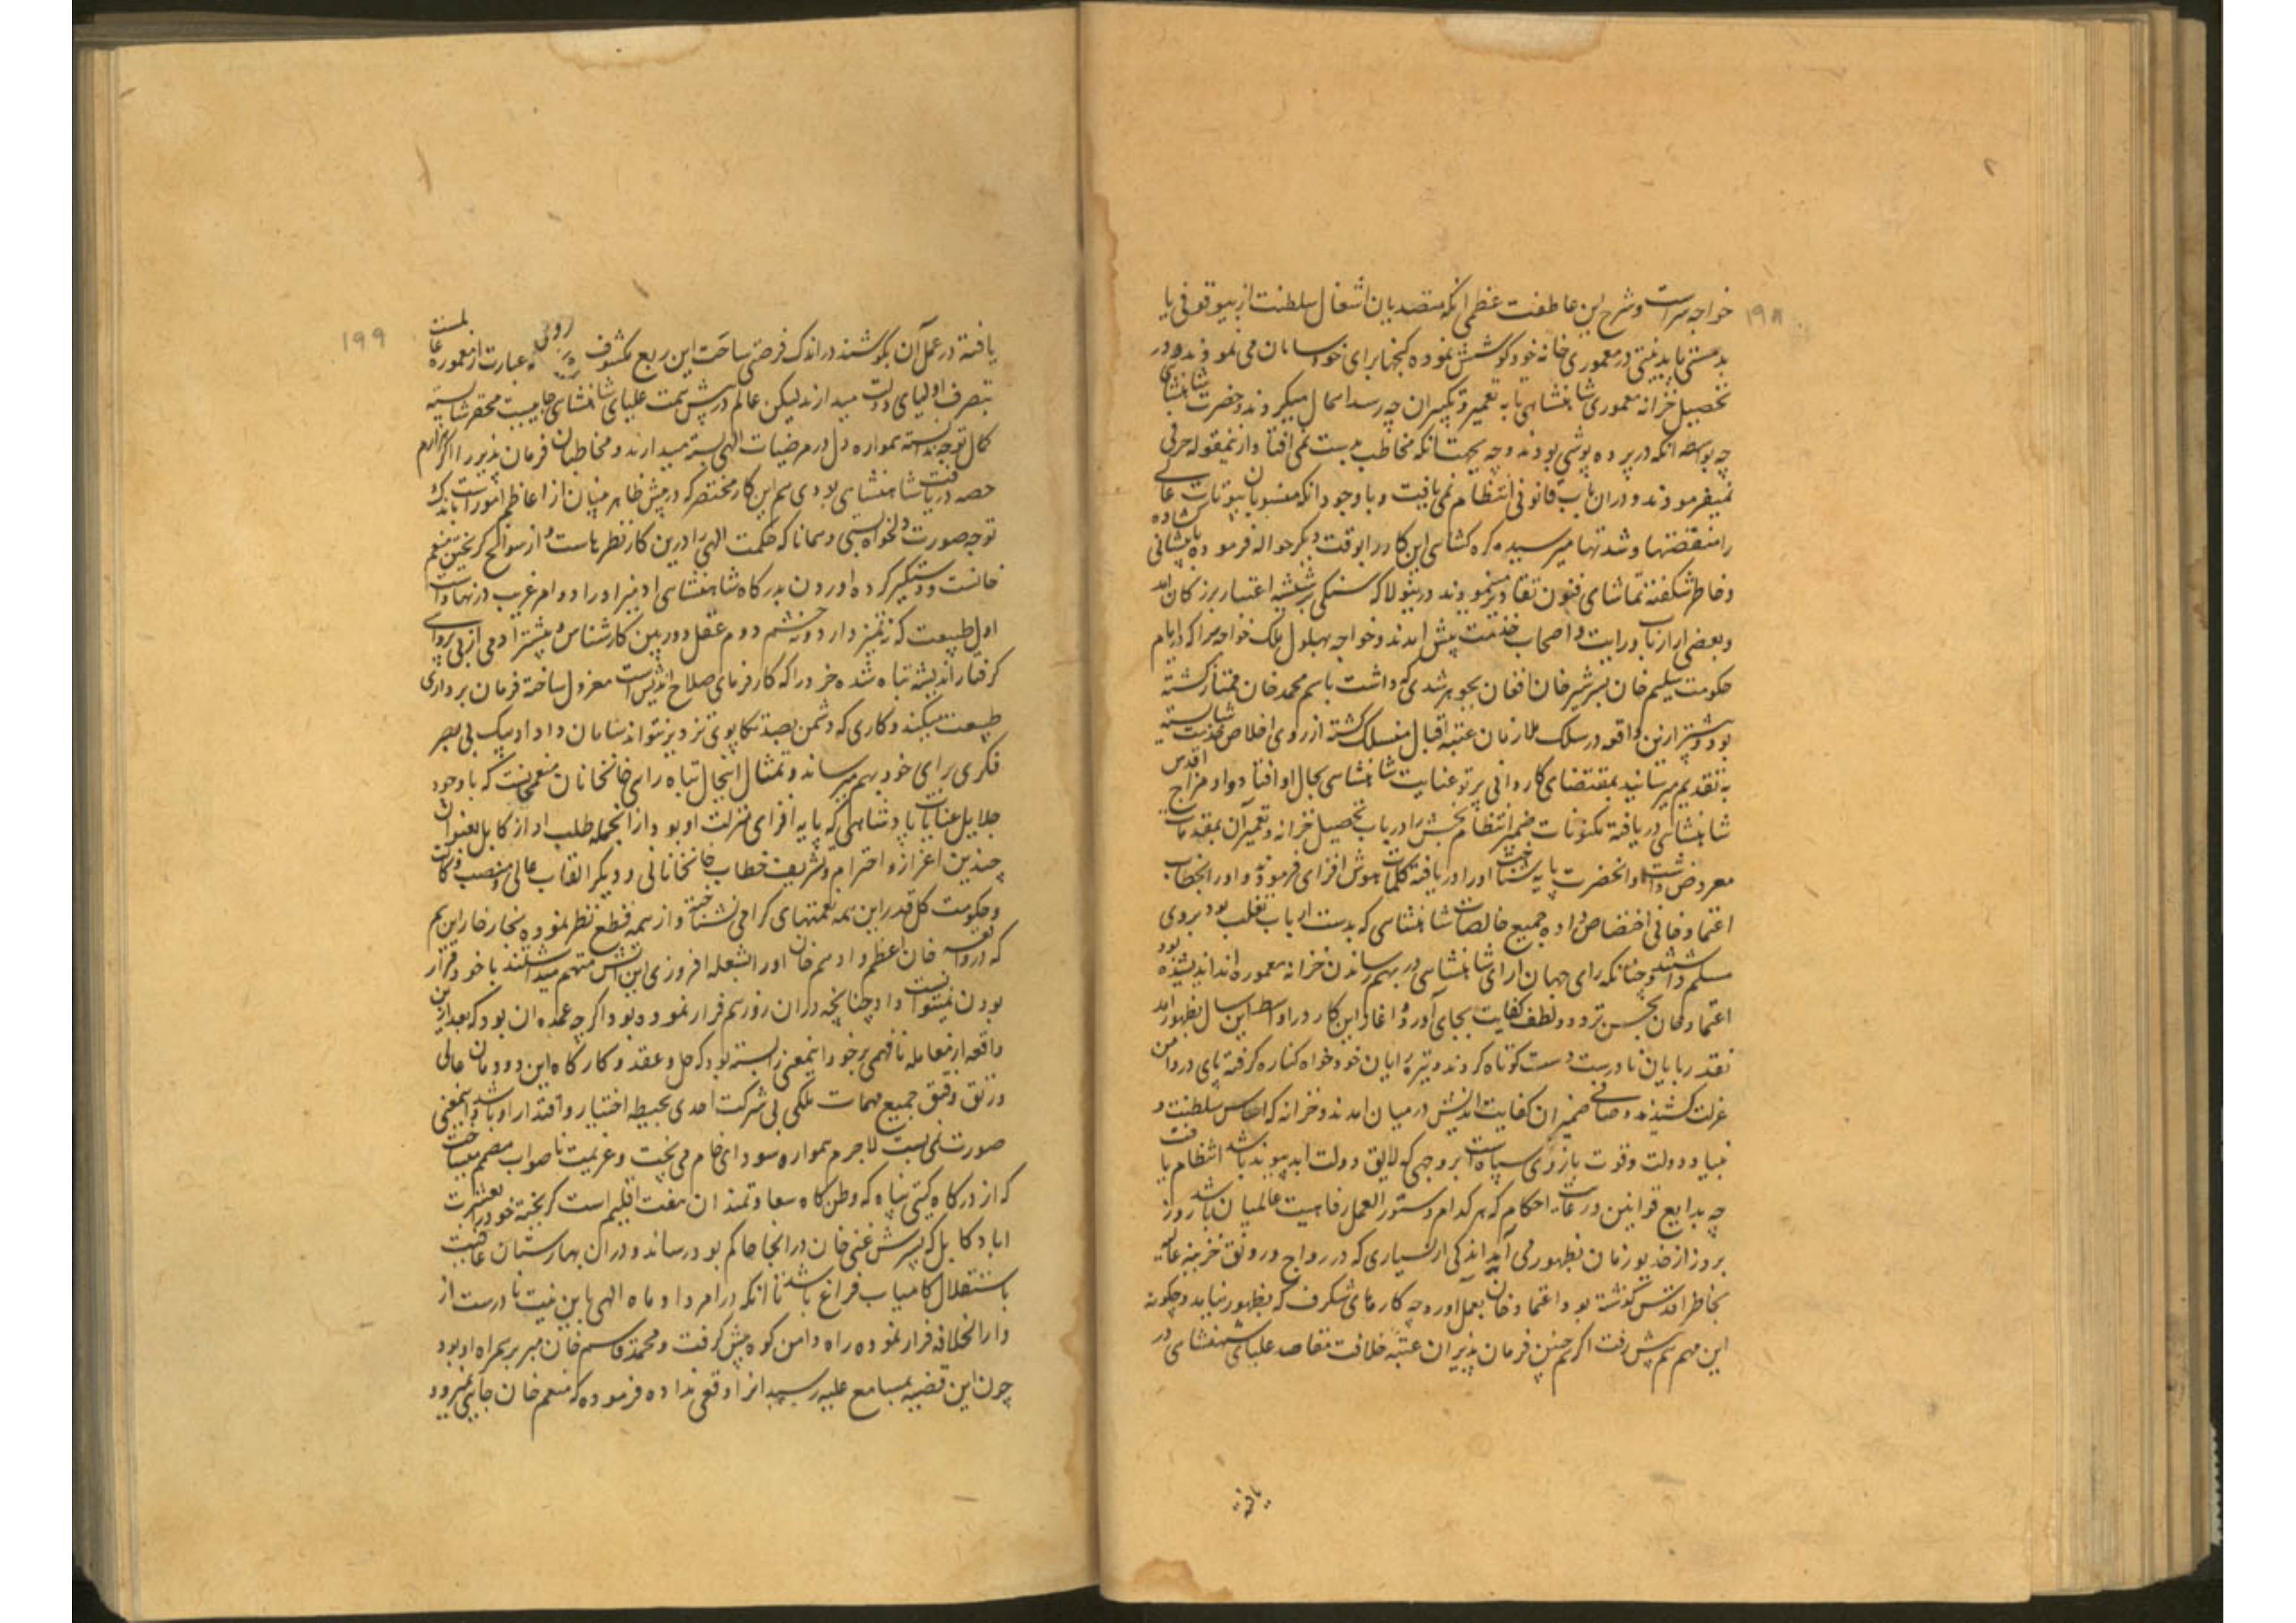 ۱۹۸
خواجه سراست و شرح این عاطفت عظمی آنکه متصدیان اشغال سلطنت از بیوقوفی یا
بدمستی یا بدنیتی در معموری خانه خود کوشش نموده گنجها برای خود سامان می نمودند و در
تحصیل خزانه معموری شاهنشاهی تا به تعمیر و تکثیر آن چه رسد اهمال میکردند و حضرت شاهنشاهی
چه بواسطه انکه در پرده پوشی بودند و چه بجهت انکه مخاطب بدست نمی افتاد ازینمقوله حرفی
نمیفرمودند و دران باب قانونی انتظام نمی یافت و با وجود انکه منسوبان بیوتات عالی
را منقصتها و شدتها میرسید گره کشای این کار را بوقت دیگر حواله فرموده با پیشانی گشاده
و خاطر شگفته تماشای فنون تقادیر مینمودند درینولا که سنگی بر شیشه اعتبار بزرگان امد
و بعضی از ارباب درایت و اصحاب خدمت پیش امدند و خواجه بهلول ملک خواجه سرا که در ایام
حکومت سلیم خان پسر شیر خان افغان بجوهر رشدی که داشت باسم محمد خان ممتاز گشته
بود و پیشتر ازین واقعه در سلک ملازمان عتبه اقبال منسلک گشته از روی اخلاص خدمت شایسته
به تقدیم میرسانید بمقتضای کاردانی پرتو عنایت شاهنشاهی بحال او افتاد و او مزاج اقدس
شاهنشاهی دریافته مکنونات ضمیر انتظام بخش را در باب تحصیل خزانه و تعمیر آن بمقدمات
معروض داشت و انحضرت پایه شناخت او را دریافته کلمات هوش افزای فرمودند و او را بخطاب
اعتماد خانی اختصاص داده جمیع خالصات شاهنشاهی که بدست ارباب تغلب بود بروی
مسلم داشتند و چنانکه رای جهان ارای شاهنشاهی در بهم رساندن خزانه معموره اندیشیده بود
اعتماد خان بحسن تردد و لطف کفایت بجای آورد و اغاز این کار در اواسط این سال بظهور امد
نقد ربایان نادرست دست کوتاه کردند و تیره رایان خود خواه کناره گرفته پای در دامن
عزلت کشیدند و صافی ضمیران کفایت اندیش در میان امدند و خزانه که اساس سلطنت و
بنیاد دولت و قوت بازوی سپاه است بروجهی که لایق دولت ابد پیوند باشد انتظام یافت
چه بدایع قوانین و رعایت احکام که هر کدام دستور العمل رفاهیت عالمیان باشد روز
بروز از خدیو زمان بظهور می آید اندکی از بسیاری که در رواج و رونق خزینه عالیه
بخاطر اقدس گذشته بود اعتماد خان بعمل آورد چه کارهای شگرف که بظهور نیامد و چگونه
این مهم هم پیش رفت اگر هم چنین فرمان پذیران عتبه خلافت مقاصد علیای شهنشاهی در
یافته
۱۹۹
یافته در عمل آن بکوشند در اندک فرصتی ساحت این ربع مکشوف روی عبارت از معموره عالمست
بتصرف اولیای دولت میدارند لیکن عالم در پیش همت علیای شاهنشاهی جاییست محقر شایسته
کمال توجه ندانسته همواره دل در مرضیات الهی بسته میدارند و مخاطبان فرمان پذیر را اگر هزارم
حصه دریافت شاهنشاهی بودی هم این کار مختصر که در پیش ظاهر بینان از اعاظم امور است باندک
توجه صورت دلخواه بستی و همانا که حکمت الهی را درین کار نظرهاست و از سوانح گریختن منعم
خانست و دستگیر کرده اوردن بدرگاه شاهنشاهی ادمیزاد را دو امر غریب در نهاد است
اول طبیعت که نه تمیز دارد و نه چشم دوم عقل دوربین کارشناس و بیشتر ادمی از بی پروائی
گرفتار اندیشه تباه شده خرد را که کارفرمای صلاح اندیش است معزول ساخته فرمان برداری
طبیعت میکند و کاری که دشمن بصد تکاپوی تزویر نتواند سامان داد او بیک بی بصر
فکری برای خود بهم میرساند و تمثال اینحال تباه رای خانخانان منعم خانست که با وجود
جلایل عنایات پادشاهی که پایه افزای منزلت او بود و ازانجمله طلب او از کابل بعنوان
چندین اعزاز و احترام و تشریف خطاب خانخانانی و دیگر القاب عالی و منصب وکالت
و حکومت کل قدر این همه نعمتهای گرامی نشناخته و از همه قطع نظر نموده بخار خار این هم
که در واقعه خان اعظم و ادهم خان او را بشعله افروزی این آتش متهم میداشتند با خود قرار
بودن نمیتوانست داد چنانچه دران روز هم فرار نموده بود اگرچه عمده ان بود که بعد ازین
واقعه از معامله نافهمی بر خود اینمعنی را بسته بود که حل و عقد و کار کاه این دودمان عالی
و رتق و فتق جمیع مهمات ملکی بی شرکت احدی بحیطه اختیار و اقتدار او باشد و اینمعنی
صورت نمی بست لاجرم همواره سودای خام می پخت و عزیمت ناصواب مصمم میساخت
که از درگاه گیتی پناه که وطن گاه سعادتمندان هفت اقلیم است گریخته خود را بعشرت
اباد کابل که پسرش غنی خان در انجا حاکم بود رساند و دران بهارستان عافیت
باستقلال کامیاب فراغ باشد تا انکه در امرداد ماه الهی باین نیت نادرست از
دار الخلافه فرار نموده راه دامن کوه پیش گرفت و محمد قاسم خان میر بحر همراه او بود
چون این قضیه بمسامع علیه رسید انرا وقعی نداده فرموده که منعم خان جایی نمیرود